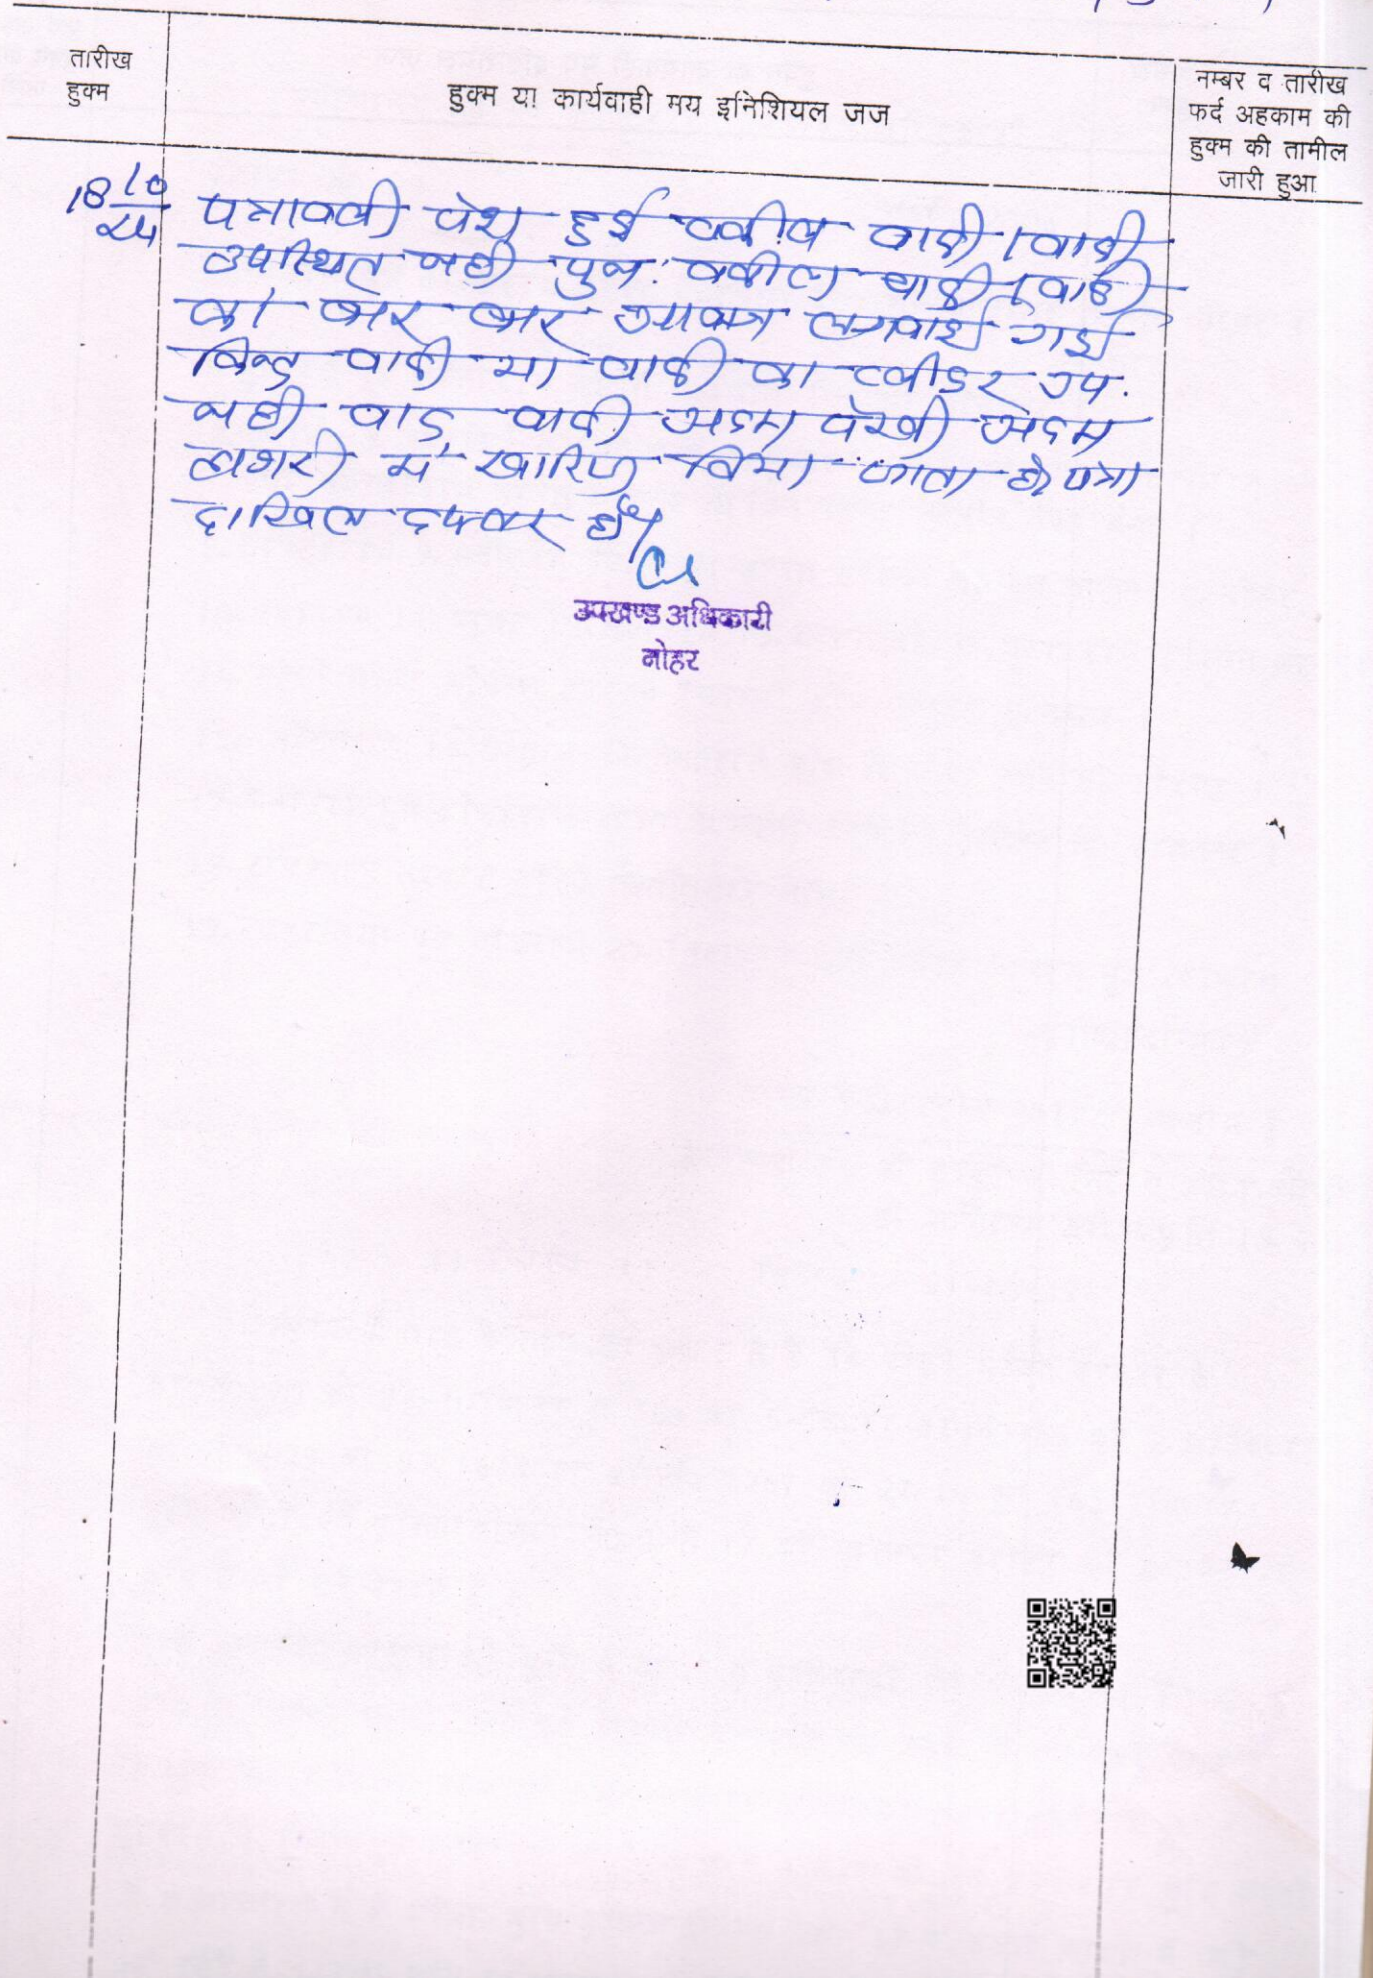 तारीख
हुक्म
हुक्म या कार्यवाही मय इनिशियल जज
नम्बर व तारीख
फर्द अहकाम की
हुक्म की तामील
जारी हुआ
18/10/24
पत्रावली पेश हुई वकील वादी/वादी
उपस्थित नही पुनः वकील वादी/वादी
को बार बार आवाज लगवाई गई
किन्तु वादी या वादी का प्लीडर उप.
नही वाद वादी अदम पैरवी अदम
हाजरी में खारिज किया जाता है। पत्रा
दाखिल दफ्तर हो।
उपखण्ड अधिकारी
नोहर